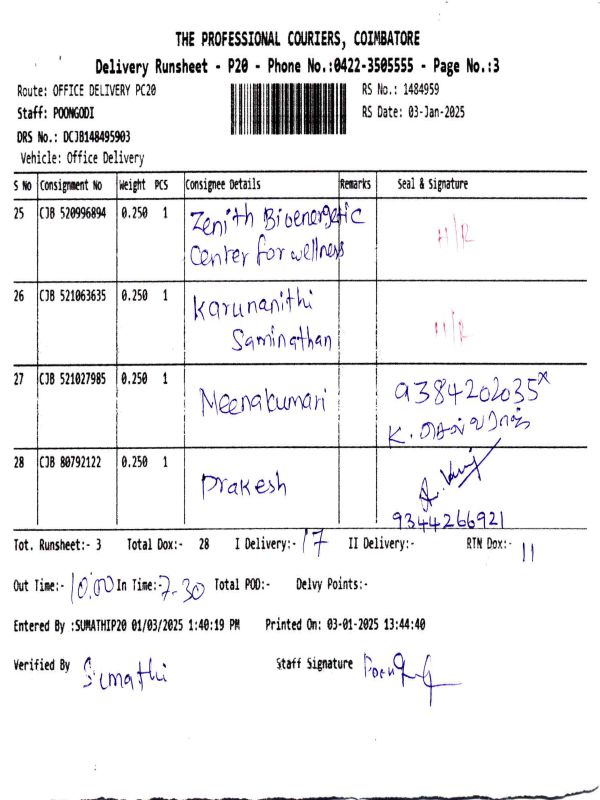 THE PROFESSIONAL COURIERS, COIMBATORE
Delivery Runsheet - P20 - Phone No.:0422-3505555 - Page No.:3
Route: OFFICE DELIVERY PC20 RS No.: 1484959
Staff: POONGODI RS Date: 03-Jan-2025
DRS No.: DCJB148495903
Vehicle: Office Delivery
S No Consignment No Weight PCS Consignee Details Remarks Seal & Signature
25 CJB 520996894 0.250 1 Zenith Bioenergetic H/R
Center for wellness
26 CJB 521063635 0.250 1 Karunanithi H/R
Saminathan
27 CJB 521027985 0.250 1 Meenakumari 9384202035
K.
28 CJB 80792122 0.250 1 Prakesh
9344266921
Tot. Runsheet:- 3 Total Dox:- 28 I Delivery:- 17 II Delivery:- RTN Dox:- 11
Out Time:- 10.00 In Time:- 7-30 Total POD:- Delvy Points:-
Entered By :SUMATHIP20 01/03/2025 1:40:19 PM Printed On: 03-01-2025 13:44:40
Verified By Sumathi Staff Signature